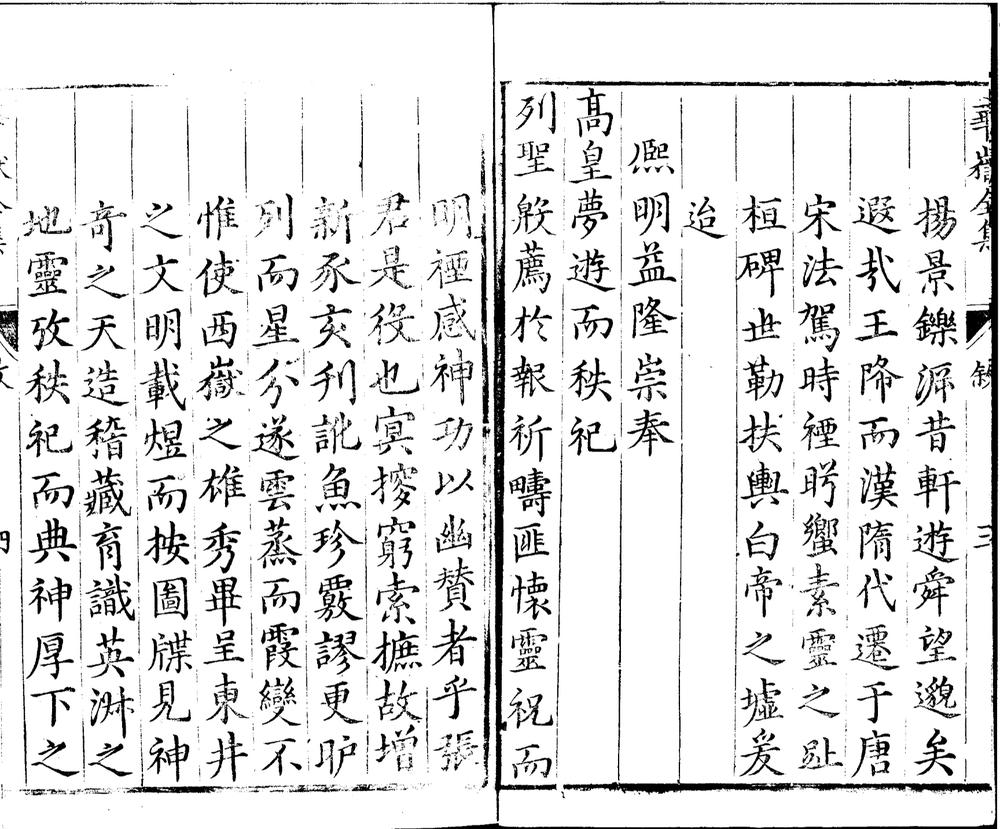 華嶽全集
敘
三
揚景鑠㴑昔軒遊舜望邈矣
遐㢤王降而漢隋代遷于唐
宋法駕時禋肸蠁素靈之趾
桓碑世勒扶輿白帝之墟爰
迨
熙明益隆崇奉
髙皇夢遊而秩祀
列聖殷薦於報祈疇匪懷靈祝而
明禋感神功以幽賛者乎張
君是役也冥搜窮索摭故增
新豕亥刋訛魚珍覈謬更昈
列而星分遂雲蒸而霞變不
惟使西嶽之雄秀畢呈東井
之文明載煜而按圖牒見神
竒之天造稽藏育識英淋之
地靈攷秩祀而典神厚下之
四